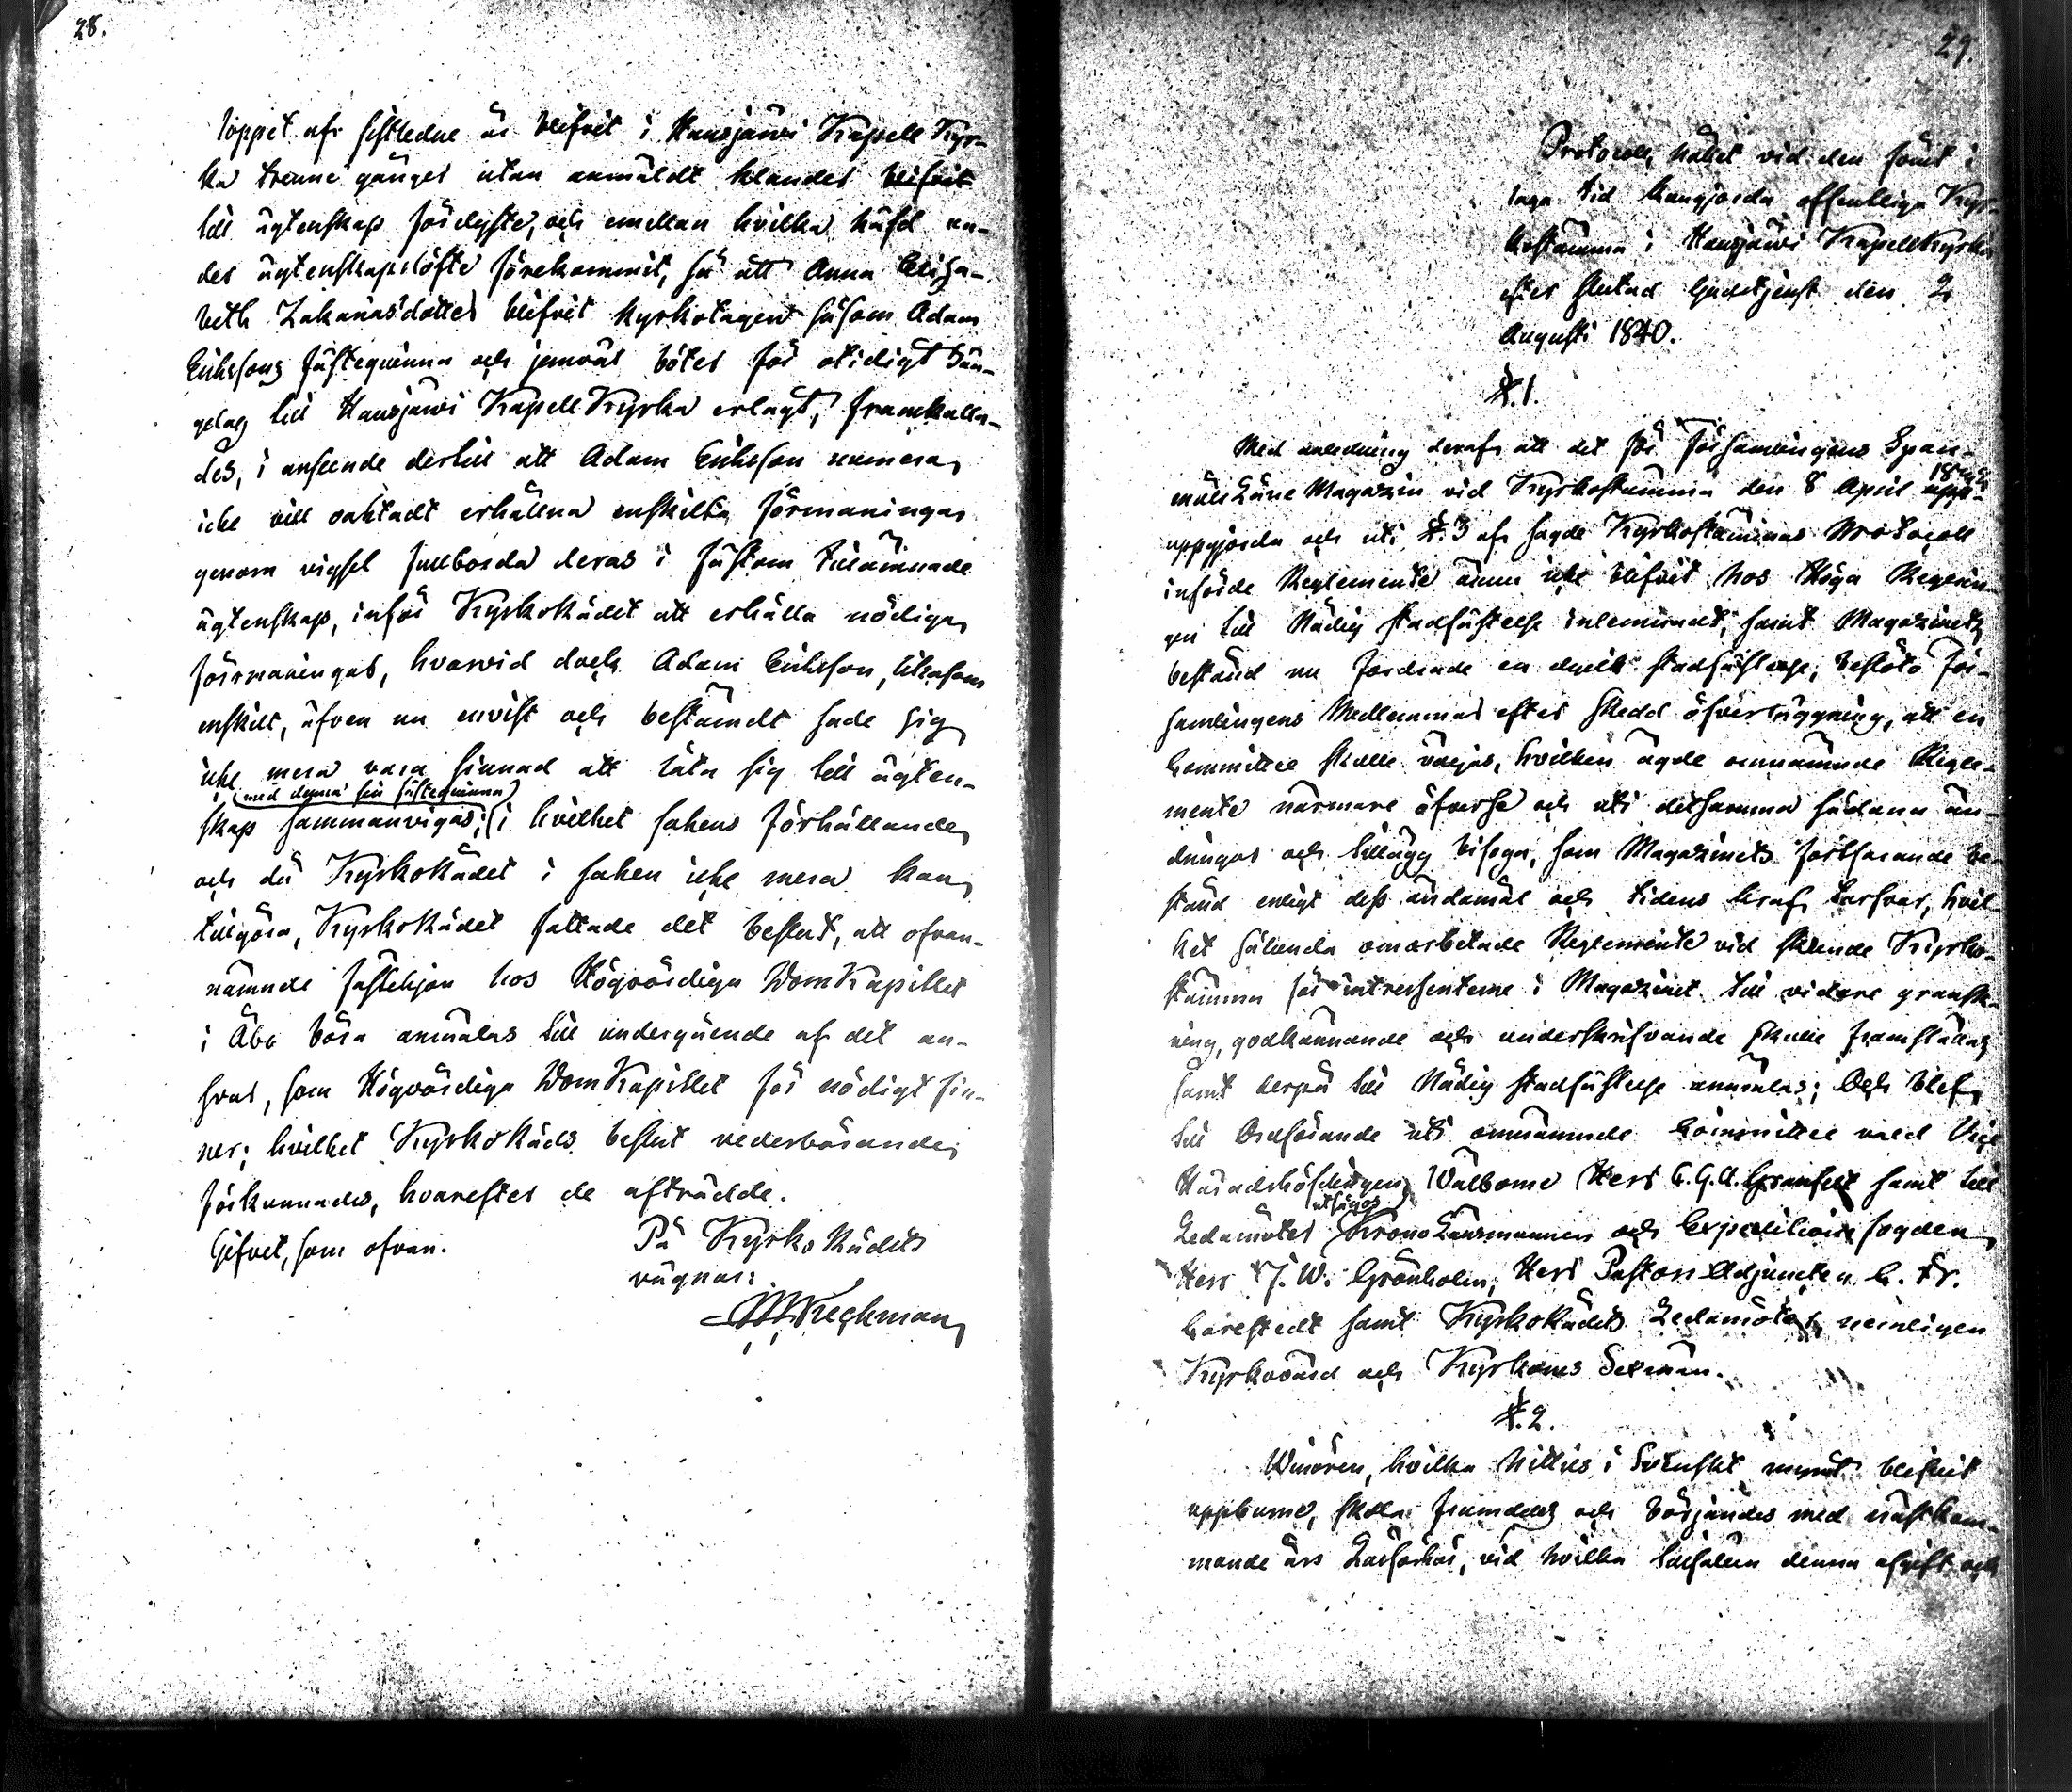 28.
loppet af sistledne år blifvit i Hausjärwi Kapell Kyr-
ka trenne gånger utan anmäldt klander blifvit
till ägtenskap förlyste, och emellan hvilka häfd un-
der ägtenskapslöfte förekommit, så att Anna Elisa-
beth Zakariasdotter blifvit kyrkotagen såsom Adam
Erikssons fästeqvinna och jemväl böter för otidigt sän-
gelag till Hausjärwi Kapell Kyrka erlagt, framkalla-
des, i anseende dertill att Adam Eriksson numera
icke vill oaktadt erhållna enskilta förmaningar
genom vigsel fullborda deras i fästom tillämnade
ägtenskap, inför KyrkoRådet att erhålla nödiga
förmaningar, hvarvid dock Adam Eriksson, likasom
enskilt, äfven nu envist och bestämdt sade sig
icke mera vara sinnad att låta sig till ägten-
med denna sin fästeqvinna
skap sammanvigas; i hvilket sakens förhållande
och då KyrkoRådet i saken icke mera kan
tillgöra, KyrkoRådet fattade det beslut, att ofvan-
nämnde fästehjon hos Högvördiga DomKapitlet
i Åbo böra anmälas till undergående af det an-
svar, som Högvördiga DomKapitlet för nödigt fin-
ner; hvilket KyrkoRåds beslut vederbörande
förkunnades, hvarefter de afträdde.
Gifvet, som ofvan.
På KyrkoRådets
vägnar:
29.
Protocoll, hållet vid den sönt i
laga tid kungjorda offentliga Kyr-
kostämma i Hausjärwi KapellKyrka
efter slutad Gudstjenst den 2
Augusti 1840.
§.1.
Med anledning deraf att det för Församlingens Span-
måls Låne Magazin vid Kyrkostämma den 8 April
uppgjorda och uti §.3 af sagde Kyrkostämmas Protocoll
införde Reglemente ännu icke blifvit hos Höga Regerin-
gen till Nådig stadfästelse inlemnadt, samt Magazinets
bestånd nu fordrade en dylik stadfästelse, beslöto För-
samlingens Medlemmar efter skedd öfverläggning, att en
Committee skulle väljas, hvilken ägde omnämnde Regle-
mente närmare öfverse och uti detsamma sådana än-
dringar och tillägg bifoga, som Magazinets fortfarande be-
stånd enligt dess ändamål och tidens kraf tarfvar, hvil-
ket sålunda omarbetade Reglemente vid skeende Kyrko-
stämma för intressenterne i Magazinet till vidare gransk-
ning, godkännande och underskrifvande skulle framställas
samt derpå till Nådig stadfästelse anmälas; Och blef
till Ordförande uti omnämnde Committee vald Vice
Häradshöfdingen, Wälborne Herr C. G. A. Granfelt samt till
utsågos
Ledamöter KronoLänsmannen och Expeditions fogden
Herr J. W. Grönholm, Herr Pastors Adjuncten C. Fr.
Carestedt samt KyrkoRådets Ledamöter, nemligen
Kyrkovärd och Kyrkans Sexmän.
§.2.
Winören, hvilka hittils i Svenskt mynt blifvit
uppburne, skola framdeles och börjandes med nästkom-
mande års Läsförhör, vid hvilka tillfällen denna afgift och